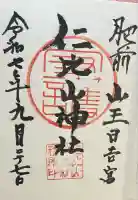 肥前
山王日吉宮
仁比山神社
令和七年九月二七日